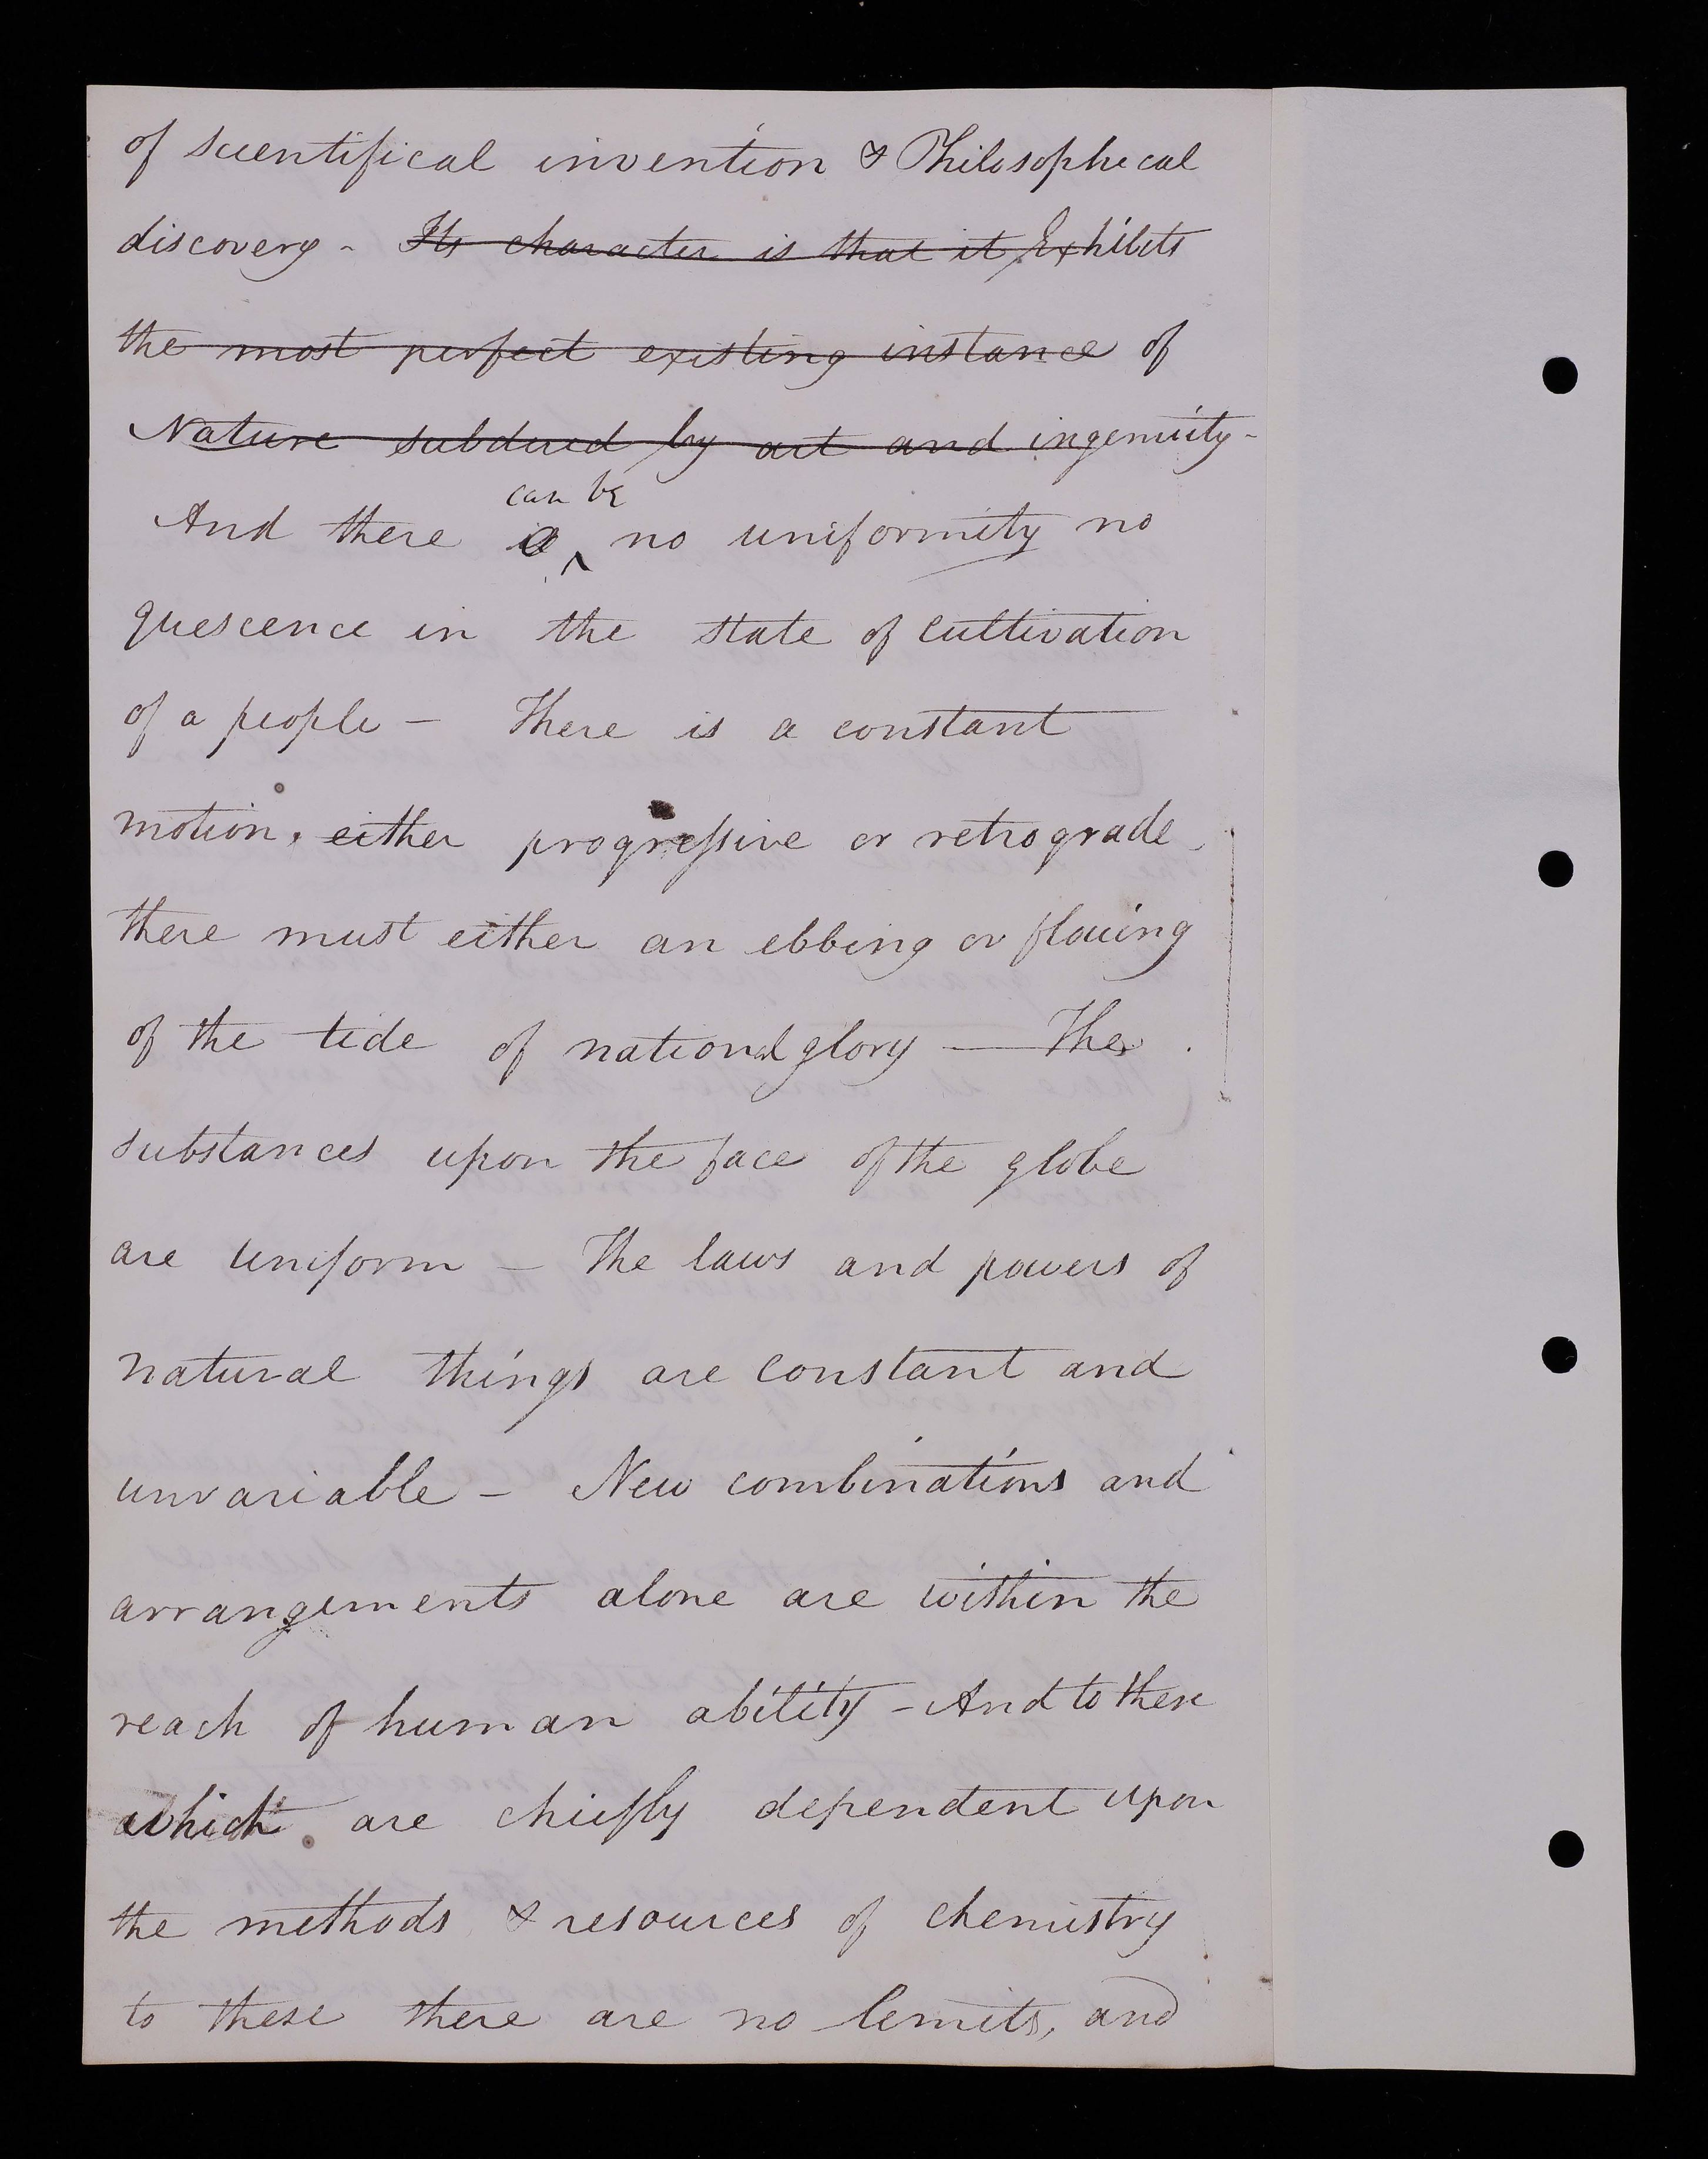 of scientifical invention & Philosophical
discovery - Its character is that it Exhibits
the most perfect existing instance of
Nature subdued by art and ingenuity -
can be
And there is ^ no uniformity no
quescence in the state of cultivation
of a people - There is a constant
motion, either progressive or retrograde,
there must either an ebbing or flowing
of the tide of national glory — The
substances upon the face of the globe
are uniform - The laws and powers of
natural things are constant and
unvariable - New combinations and
arrangements alone are within the
reach of human ability - And to these
which are chiefly dependent upon
the methods & resources of chemistry
to these there are no limits, and